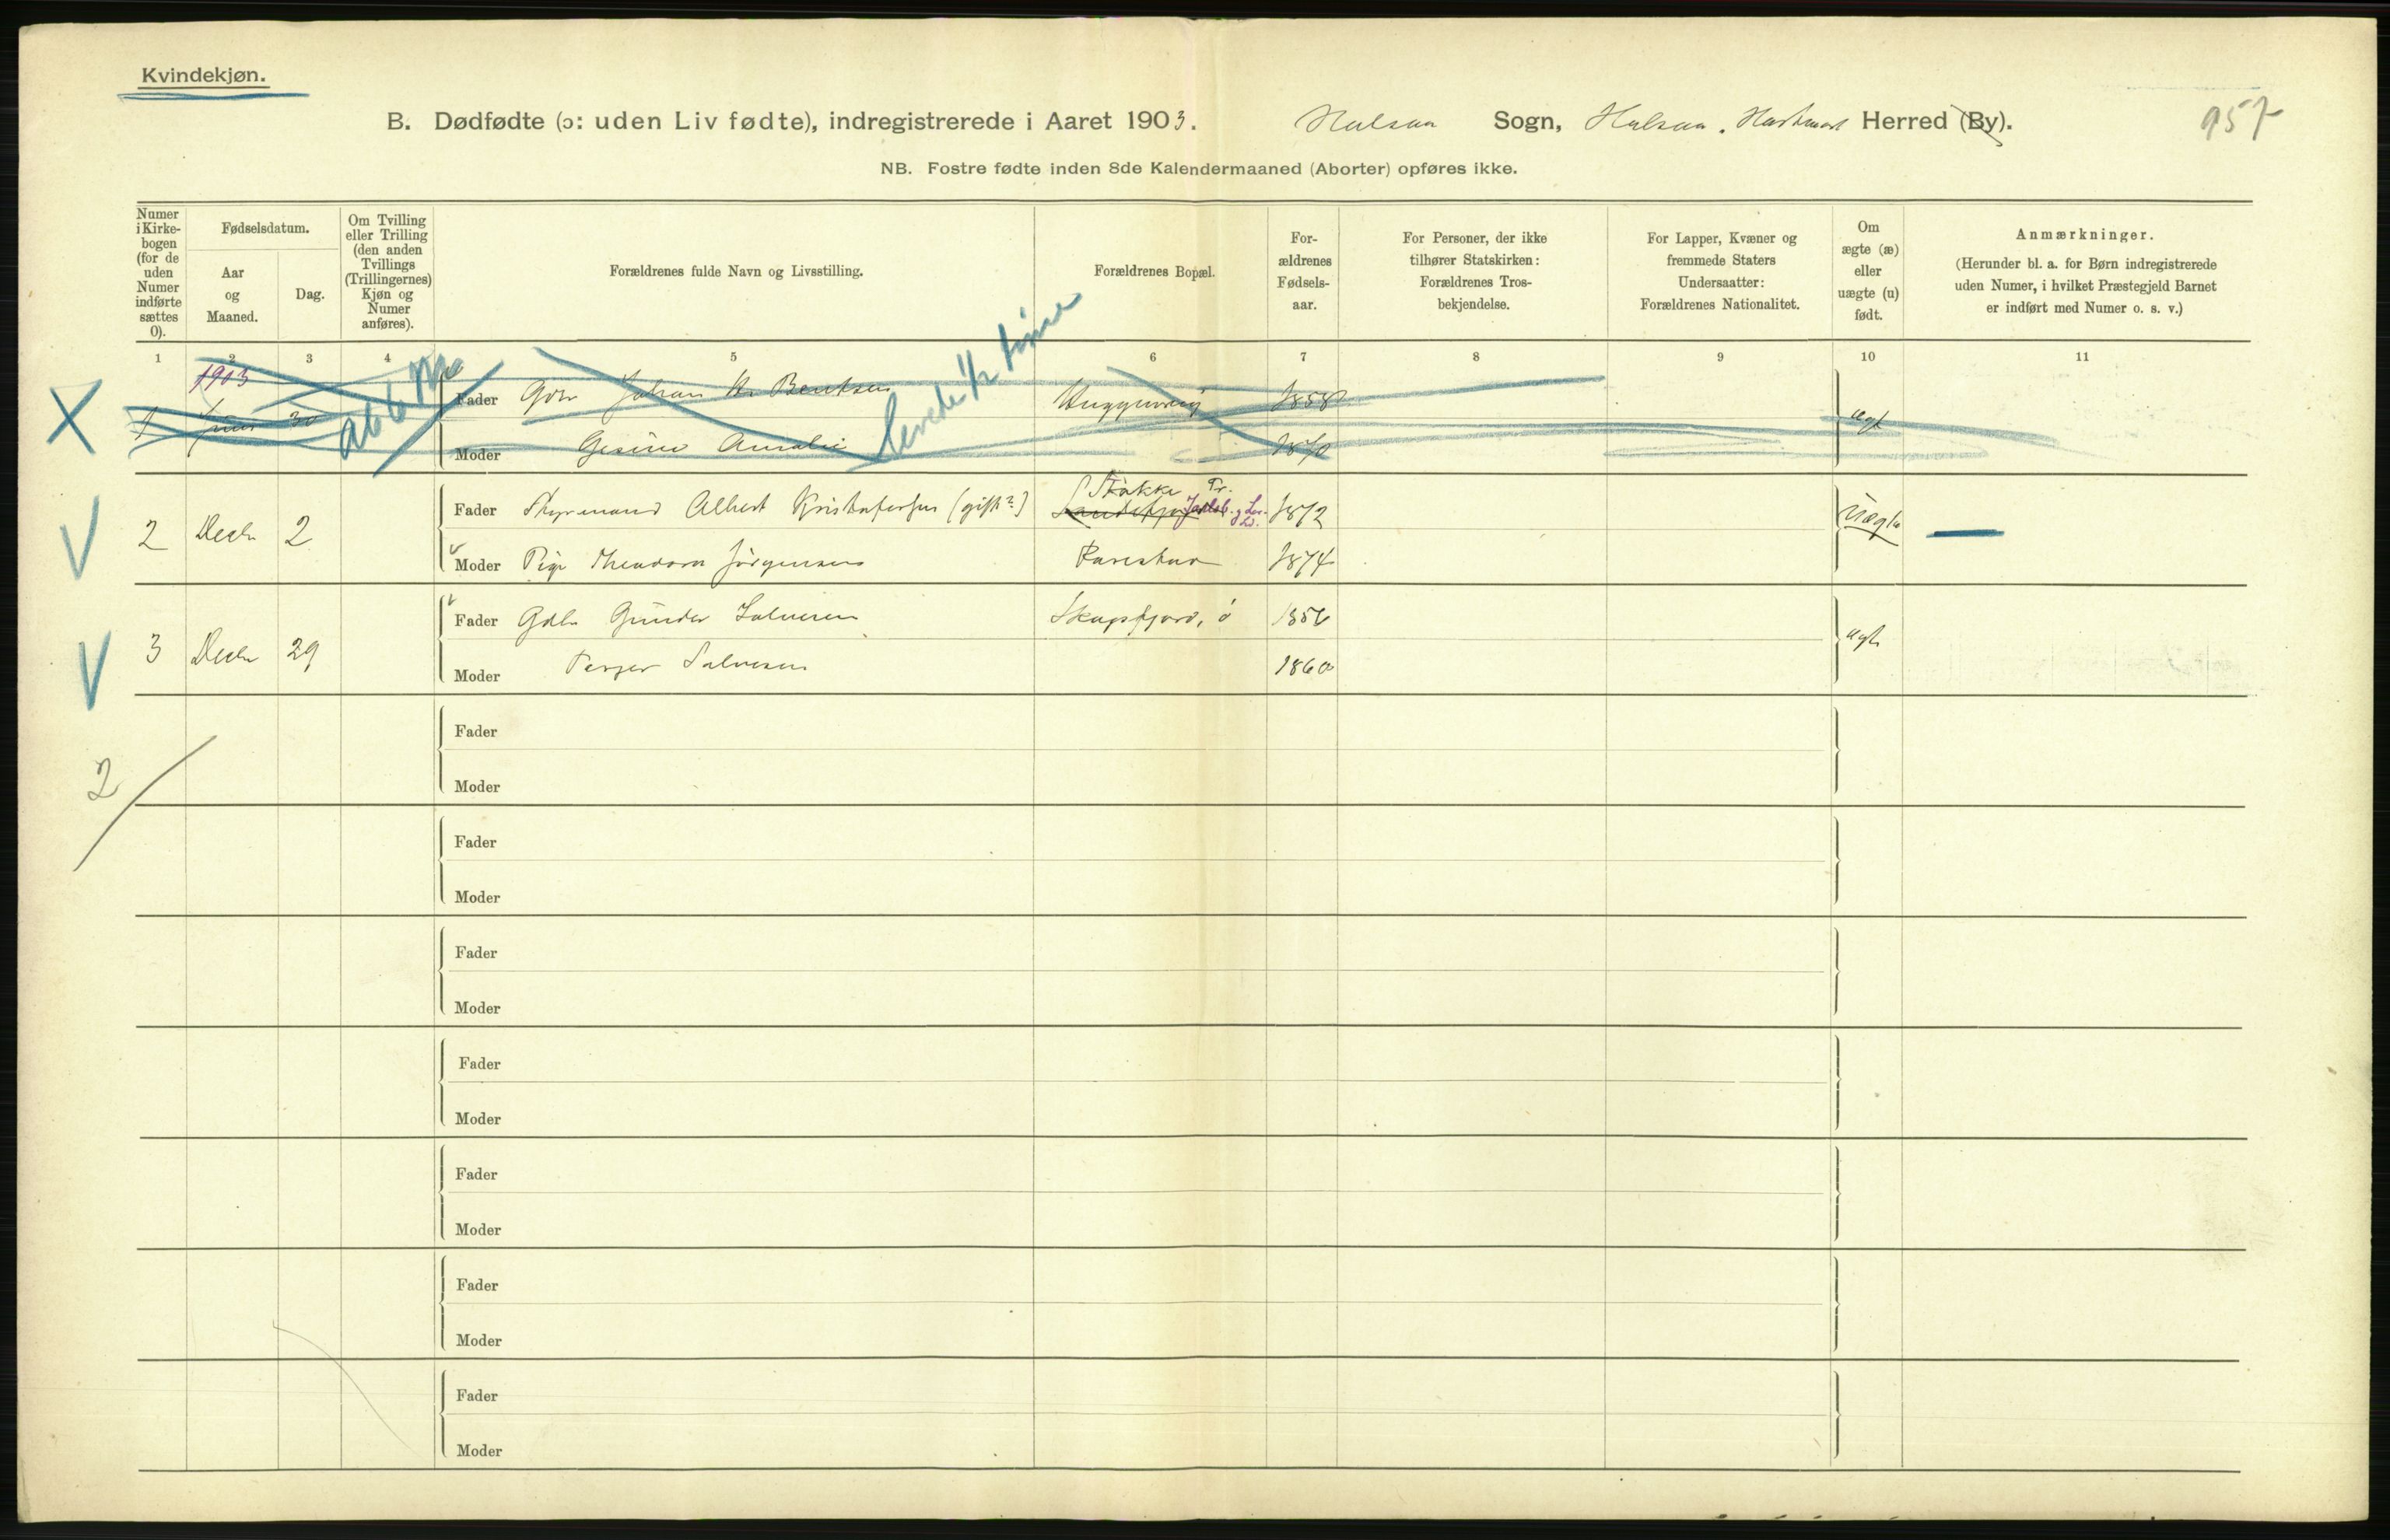 Kvindekjøn.
B. Dødfødte (ɔ: uden Liv fødte), indregistrerede i Aaret 1903. Halsaa Sogn, Halsaa. Hartmark Herred (By).
957
NB. Fostre fødte inden 8de Kalendermaaned (Aborter) opføres ikke.
Numer i Kirkebogen (for de uden Numer indførte sættes 0).
Fødselsdatum.
Aar og Maaned.
Dag.
Om Tvilling eller Trilling (den anden Tvillings (Trillingernes) Kjøn og Numer anføres).
Forældrenes fulde Navn og Livsstilling.
Forældrenes Bopæl.
Forældrenes Fødselsaar.
For Personer, der ikke tilhører Statskirken: Forældrenes Trosbekjendelse.
For Lapper, Kvæner og fremmede Staters Undersaatter: Forældrenes Nationalitet.
Om ægte (æ) eller uægte (u) født.
Anmærkninger.
(Herunder bl. a. for Børn indregistrerede uden Numer, i hvilket Præstegjeld Barnet er indført med Numer o. s. v.)
1 2 3 4 5 6 7 8 9 10 11
1903
X 1 Juni 30 Fader Gbr Johan A. Bentsen 1858 ægt
levede 1/2 time
Moder Gesine Amalie 1870
V 2 Decbr 2 Fader Styrmand Albert Kristofersen (gift?) Stokke Pr. Sandefjord Jarlsb. og Lar. 1872 Uægte —
Moder Pige Theodora Jørgensen 1874
V 3 Decbr 29 Fader Gdbr Gunder Salvesen Skogsfjord, ø 1856 ægte
Moder Salvesen 1860
2
Fader
Moder
Fader
Moder
Fader
Moder
Fader
Moder
Fader
Moder
Fader
Moder
Fader
Moder